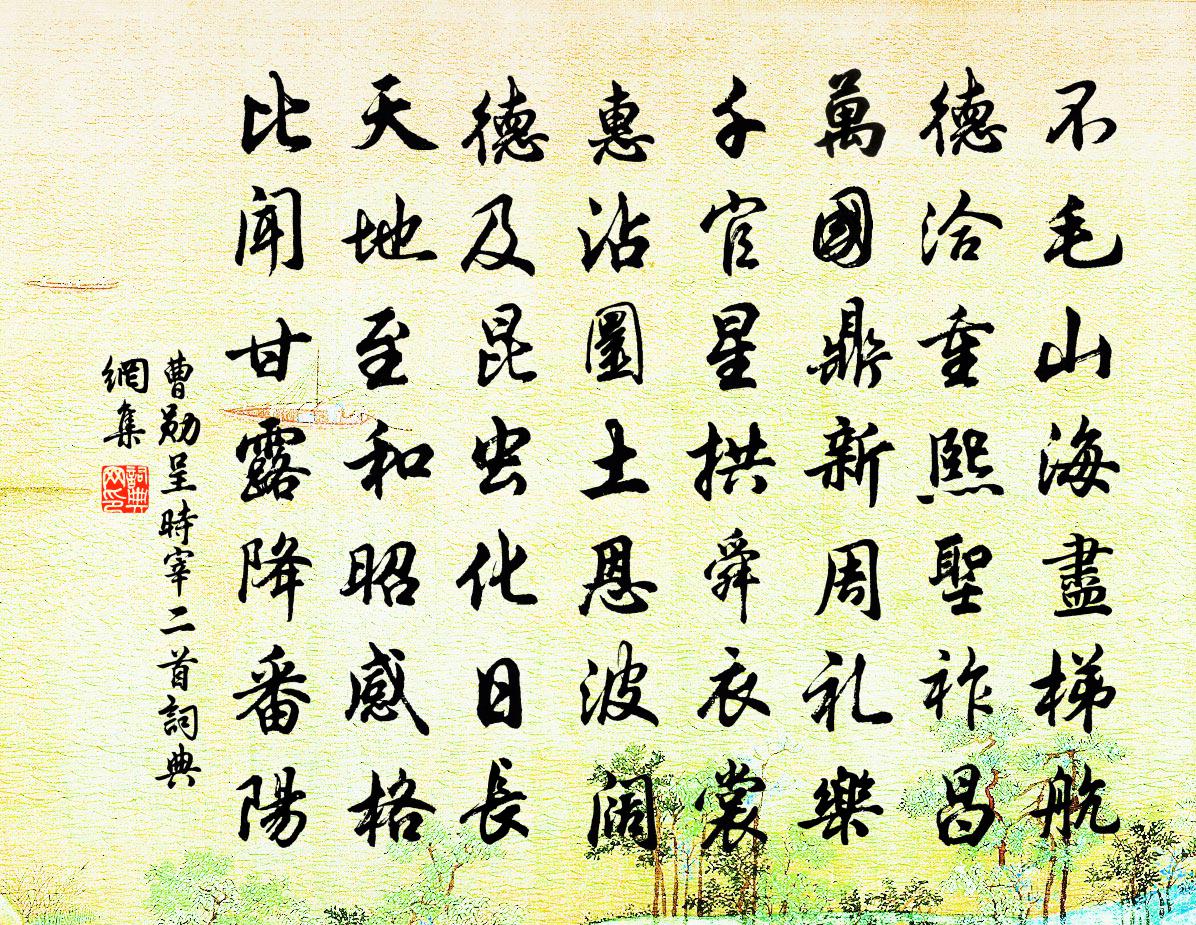 不毛山海盡梯航
德洽重熙聖祚昌
萬國鼎新周礼樂
千官星拱舜衣裳
惠沾圜土恩波闊
德及昆虫化日長
天地至和昭感格
比聞甘露降番陽
曹勛呈時宰二首詞典
網集
詞典
网印